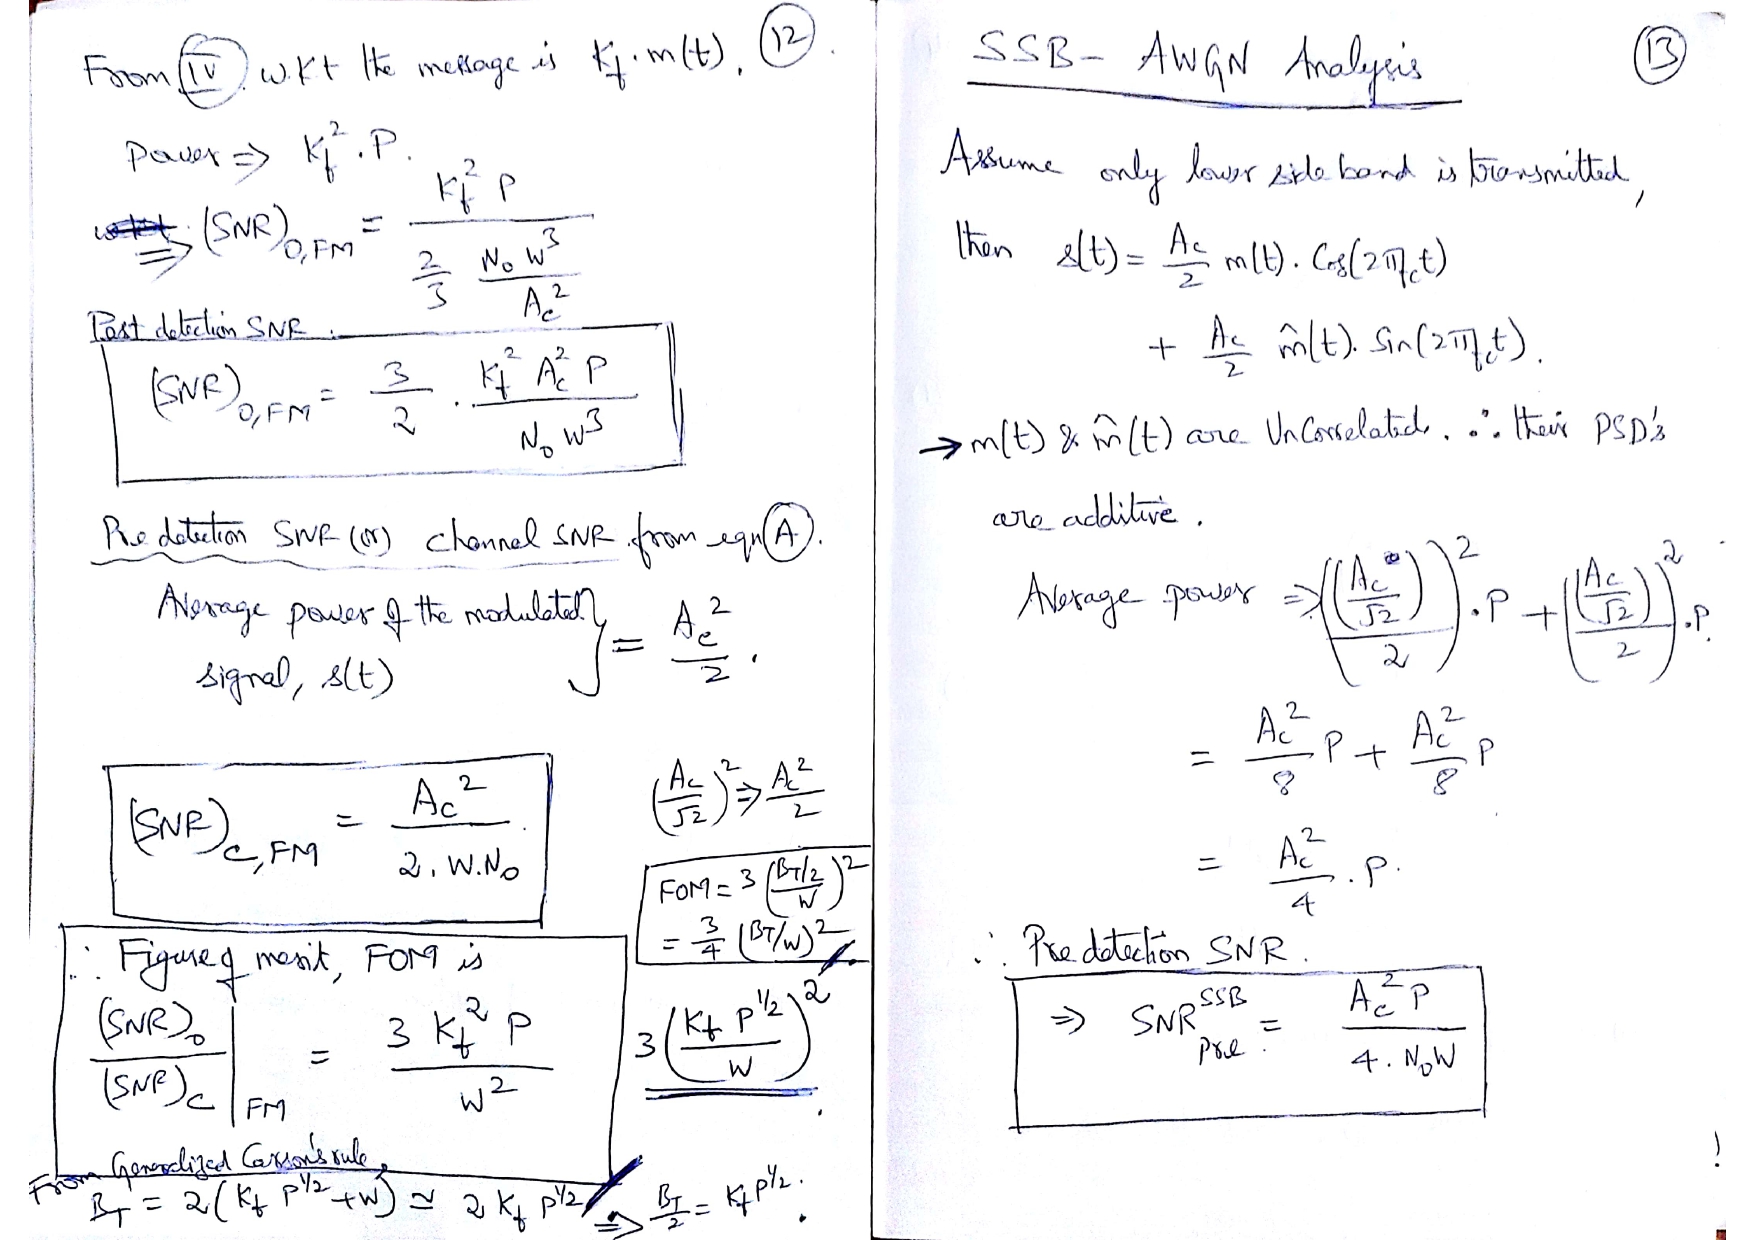 From (IV) w.k.t the message is K_f.m(t), (12).
Power => K_f^2.P.
=> (SNR)_{O,FM} = K_f^2 P / (2/3 N_0 W^3 / A_c^2)
Post detection SNR.
(SNR)_{O,FM} = 3/2 . K_f^2 A_c^2 P / N_0 W^3
Pre detection SNR (or) channel SNR from eqn (A).
Average power of the modulated
signal, s(t) } = A_c^2 / 2.
(SNR)_{C,FM} = A_c^2 / 2.W.N_0
(A_c/√2)^2 => A_c^2/2
FOM = 3 ((B_T/2)/W)^2
= 3/4 (B_T/W)^2
∴ Figure of merit, FOM is
(SNR)_O / (SNR)_C |_{FM} = 3 K_f^2 P / W^2
3 (K_f P^{1/2} / W)^2.
From Generalized Carson's rule,
B_T = 2(K_f P^{1/2} + W) ≃ 2 K_f P^{1/2} => B_T/2 = K_f P^{1/2}.
SSB - AWGN Analysis (13)
Assume only lower side band is transmitted,
then s(t) = A_c/2 m(t). Cos(2πf_c t)
+ A_c/2 m̂(t). Sin(2πf_c t).
→ m(t) & m̂(t) are UnCorrelated. ∴ their PSD's
are additive.
Average power => ((A_c/√2)/2)^2 .P + ((A_c/√2)/2)^2 .P.
= A_c^2/8 P + A_c^2/8 P
= A_c^2/4 . P.
∴ Pre detection SNR.
=> SNR_{Pre}^{SSB} = A_c^2 P / 4.N_0W